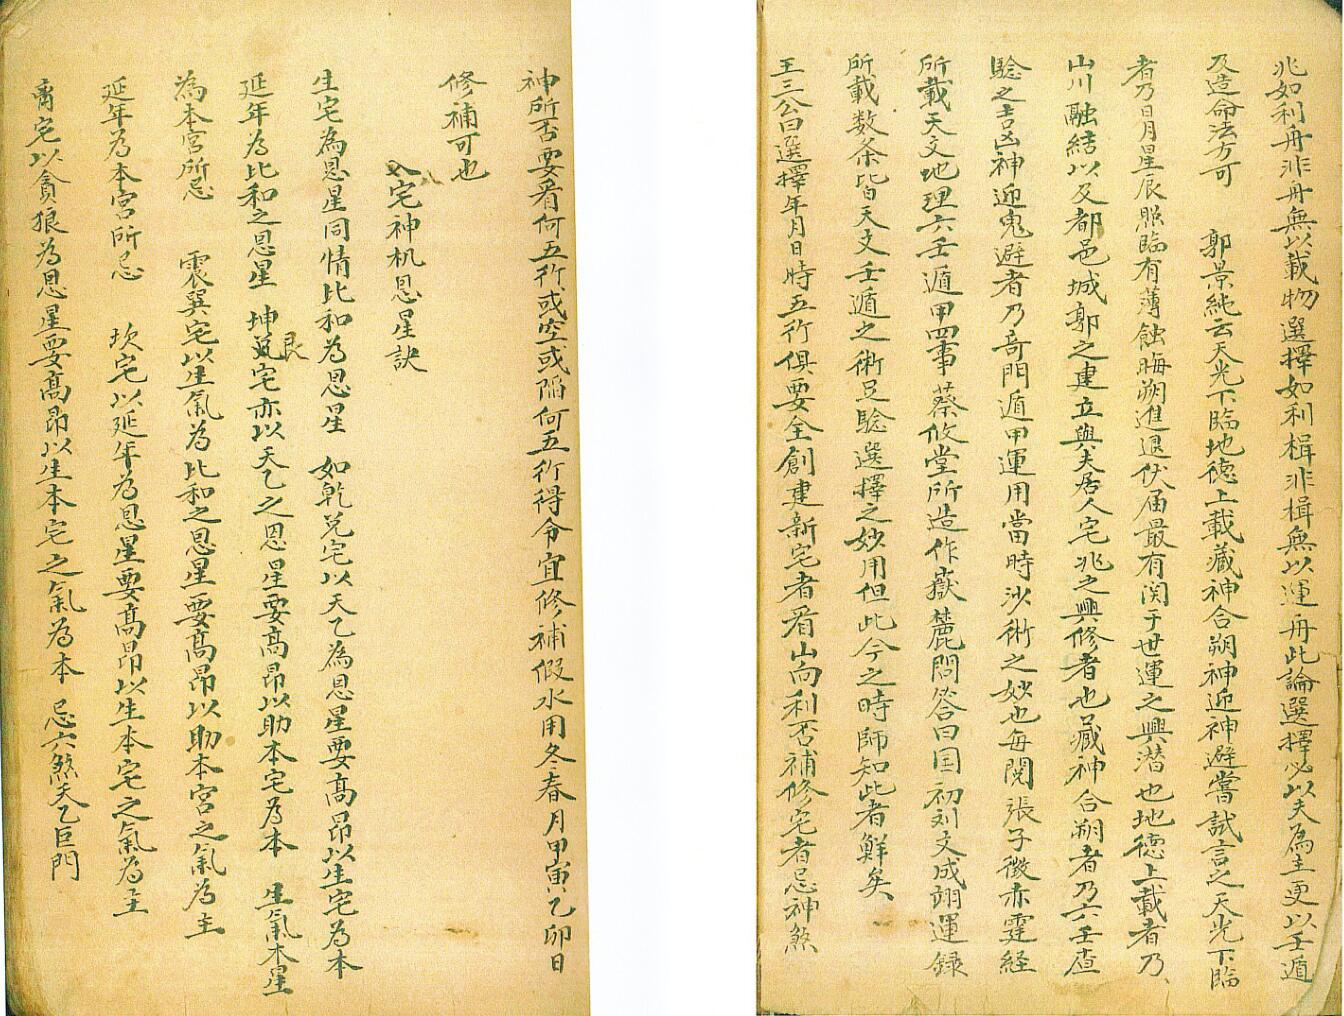 兆如利舟非舟無以載物選擇如利楫非楫無以運舟此論選擇必以夫為主更以壬遁
及造命法方可　郭景純云天光下臨地德上載藏神合朔神迎神避嘗試言之天光下臨
者乃日月星辰照臨有薄蝕晦朔進退伏届最有関于世運之興潜也地德上載者乃
山川融結以及都邑城郭之建立與夫居人宅兆之興修者也藏神合朔者乃六壬查
驗之吉凶神迎鬼避者乃奇門遁甲運用當時沙術之妙也每閱張子微赤霆経
所載天文地理六壬遁甲四事蔡攸堂所造作嶽麓問答曰国初刘文成翊運録
所載数条皆天文壬遁之術足驗選擇之妙用但此今之時師知此者鮮矣
王三公曰選擇年月日時五行俱要全創建新宅者看山向利否補修宅者忌神煞
神所否要看何五行或空或陷何五行得令宜修補假水用冬春月甲寅乙卯日
修補可也
入宅神机恩星訣
生宅為恩星同情比和為恩星　如乾兑宅以天乙為恩星要高昂以生宅為本
延年為比和之恩星　坤艮宅亦以天乙之恩星要高昂以助本宅為本　生氣木星
為本宮所忌　震巽宅以生氣為比和之恩星要高昂以助本宮之氣為主
延年為本宮所忌　坎宅以延年為恩星要高昂以生本宅之氣為主
离宅以貪狼為恩星要高昂以生本宅之氣為本　忌六煞天乙巨門